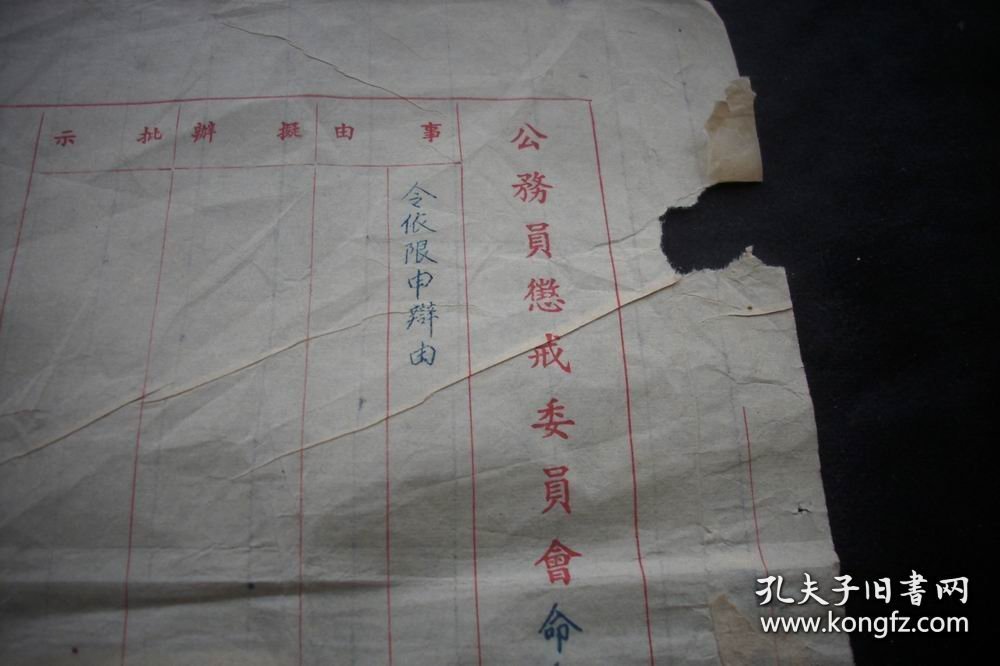 公務員懲戒委員會命
事由
令依限申辯由
擬辦
批示
孔夫子旧書网
www.kongfz.com